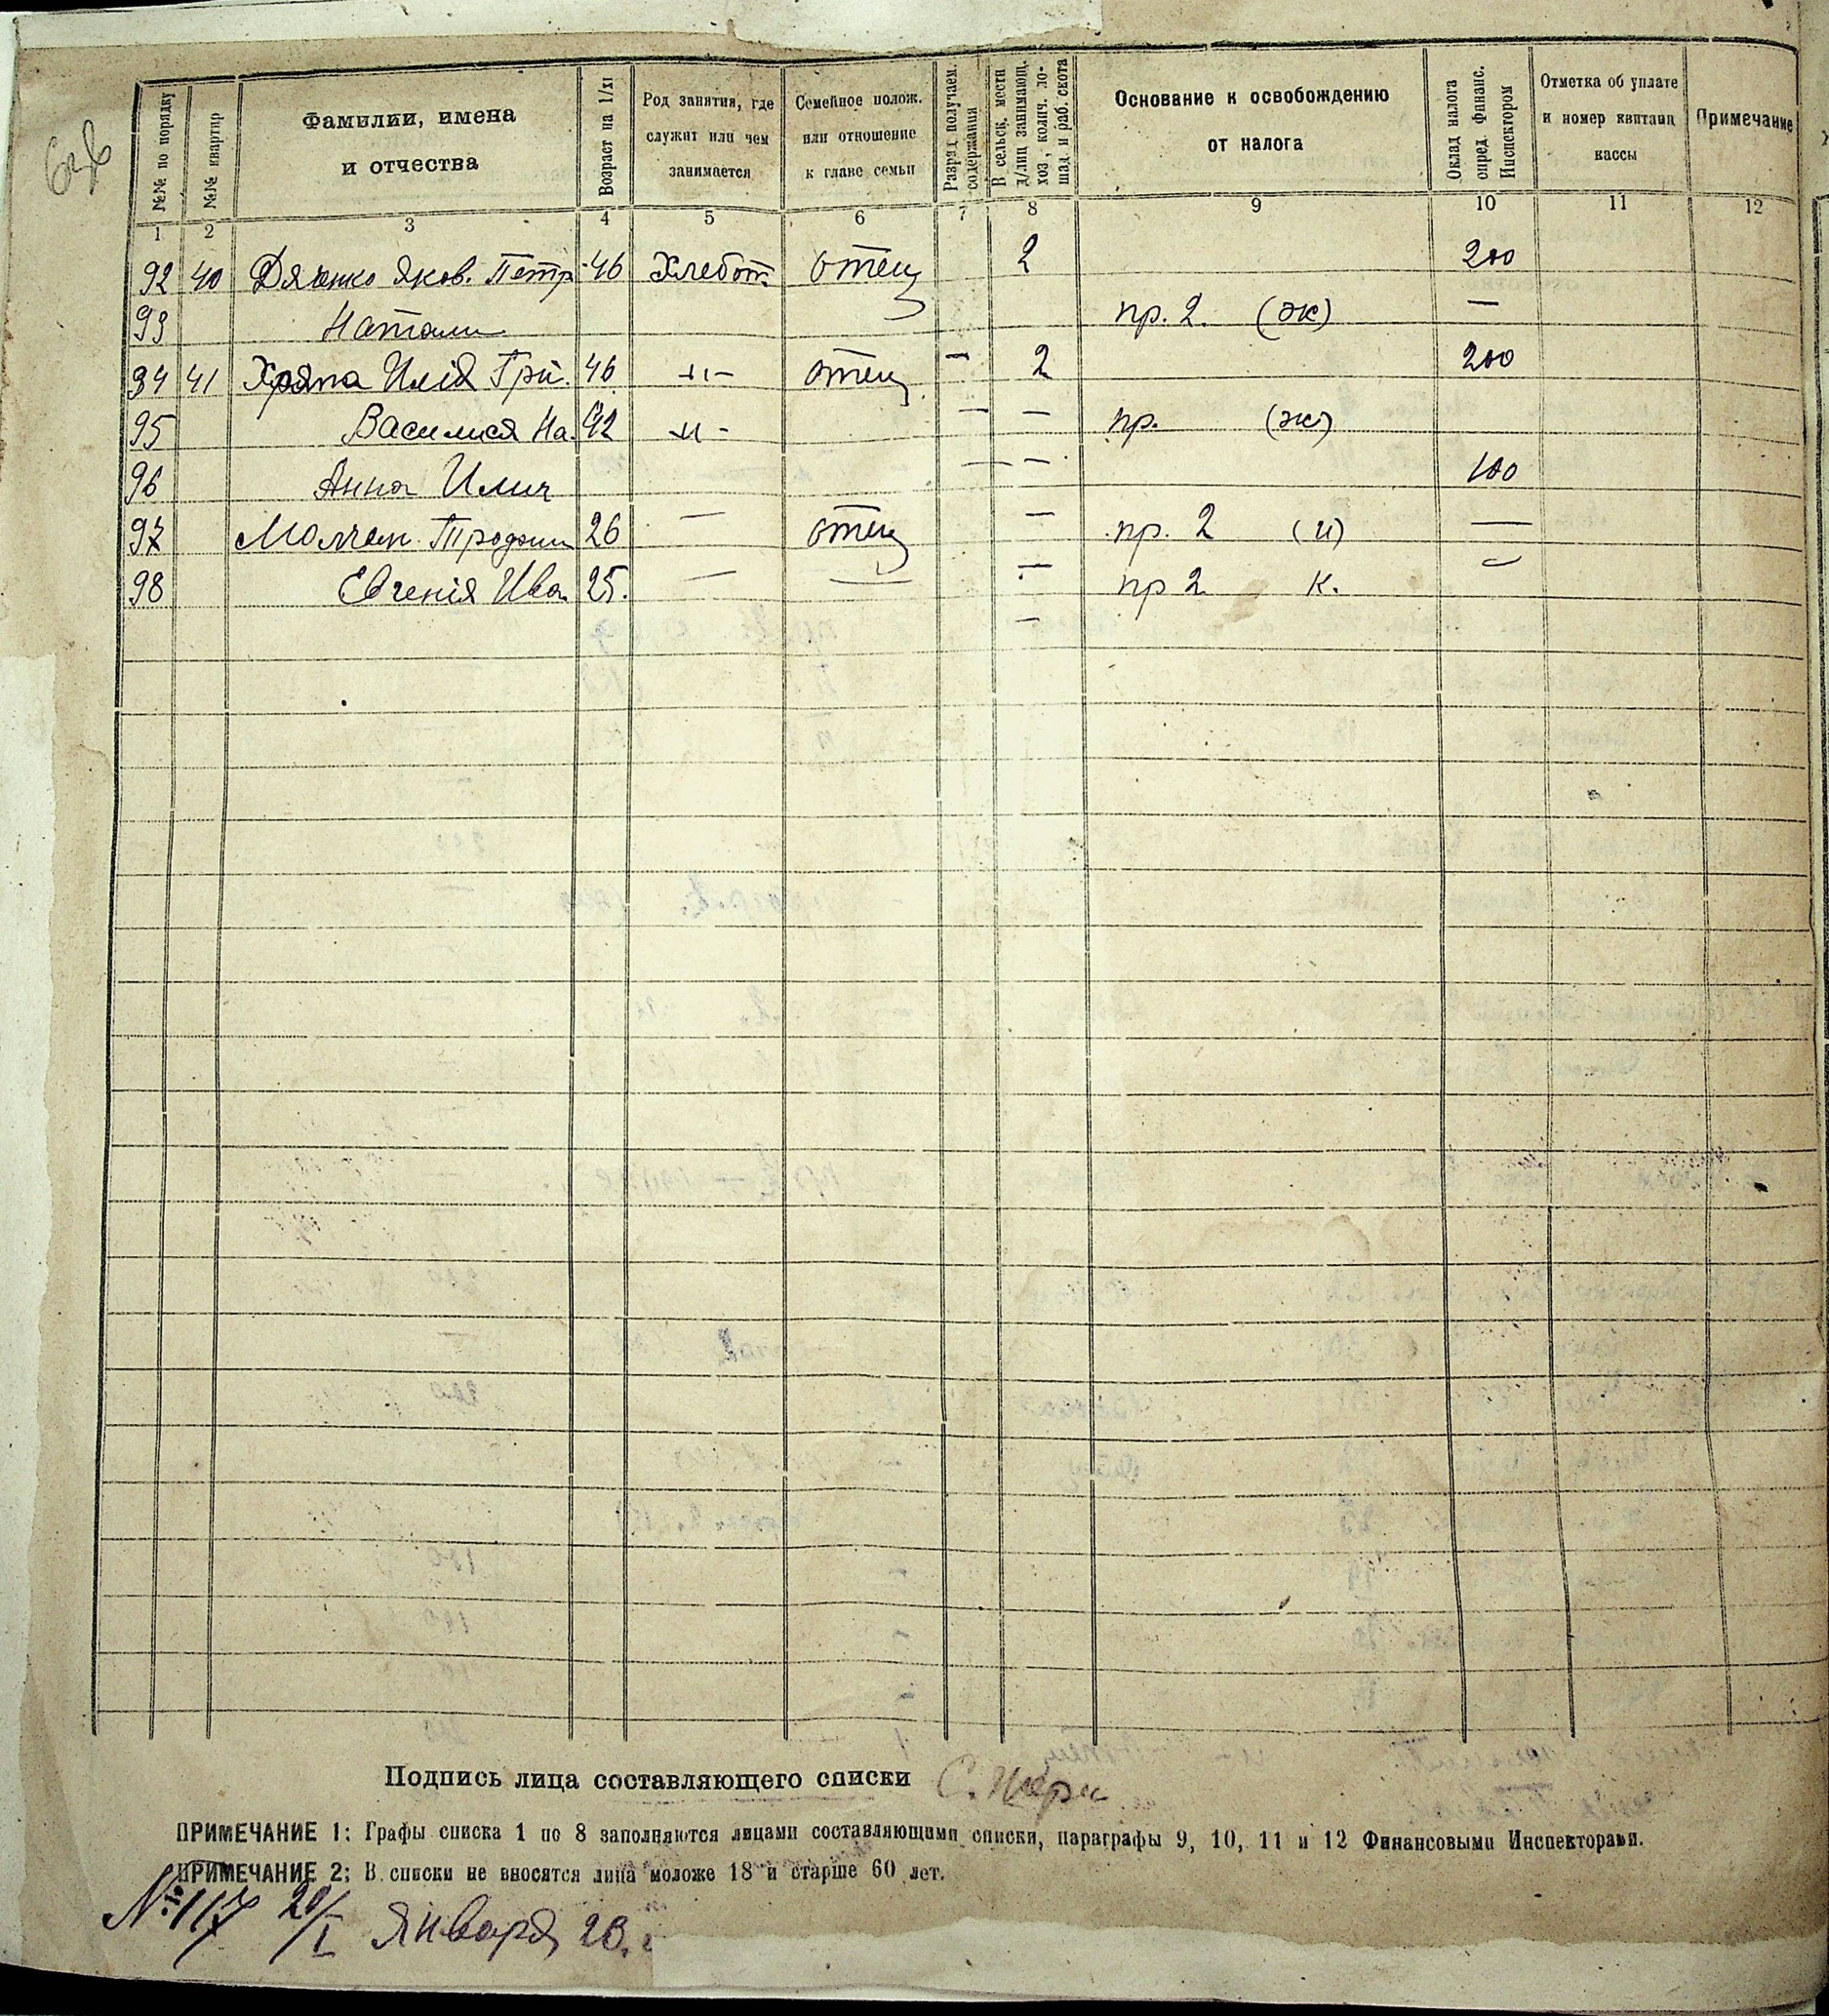 №№ по порядку
№№ квартир
Фамилии, имена
и отчества
Возраст на 1/XI
Род занятия, где
служит или чем
занимается
Семейное полож.
или отношение
к главе семьи
Разряд получаем.
содержания
В сельск. мести
д/лиц занимающ.
хоз, колич. ло-
шад. и раб. скота
Основание к освобождению
от налога
Оклад налога
опред финанс.
Инспектором
Отметка об уплате
и номер квитанц
кассы
Примечание
1 2 3 4 5 6 7 8 9 10 11 12
92 40 Яков. Петр 46 Хлебоп. отец 2 200
93 Натали пр. 2. (ж) —
94 41 Хряпа Илія Гри. 46 -"- отец - 2 200
95 Василися На. 42 -"- — — пр. (ж)
96 Анна Илич — — 100
97 Трофим 26 — отец — пр. 2 (и) —
98 Евгенія Ива. 25. — — — пр 2 к. —
Подпись лица составляющего списки
ПРИМЕЧАНИЕ 1: Графы списка 1 по 8 заполняются лицами составляющими списки, параграфы 9, 10, 11 и 12 Финансовыми Инспекторами.
ПРИМЕЧАНИЕ 2: В списки не вносятся лица моложе 18 и старше 60 лет.
№ 117 20/I Января 23. г